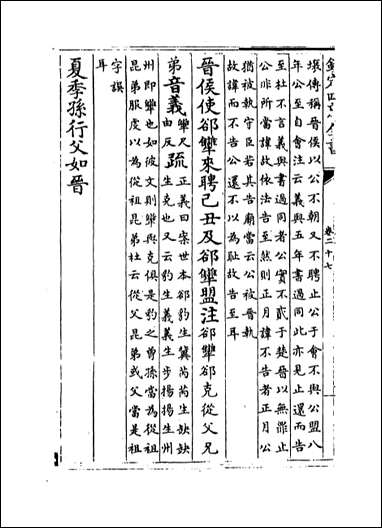 卷二十七
壤傳稱晉侯以公不朝又不聘止公于會不與公盟八
年公至自會注云義與五年書過同此亦見止還而告
至杜不言義與書過同者公實不貳于楚晉以無罪止
公非所當諱故依法告至然則正月諱不告者正月公
猶被執守臣若其告廟當云公被晉執
故諱而不告公還不以為恥故告至耳
晉侯使郤犨來聘己丑及郤犨盟注郤犨郤克從父兄
弟音義犨尺由反疏正義曰案世本郤豹生冀芮芮生缺缺
生克也又云豹生義義生步揚揚生州
州即犨也如彼文則犨與克俱是豹之曾孫當為從祖
昆弟服虔以為從祖昆弟杜云從父昆弟或父當是祖
字誤
耳
夏季孫行父如晉